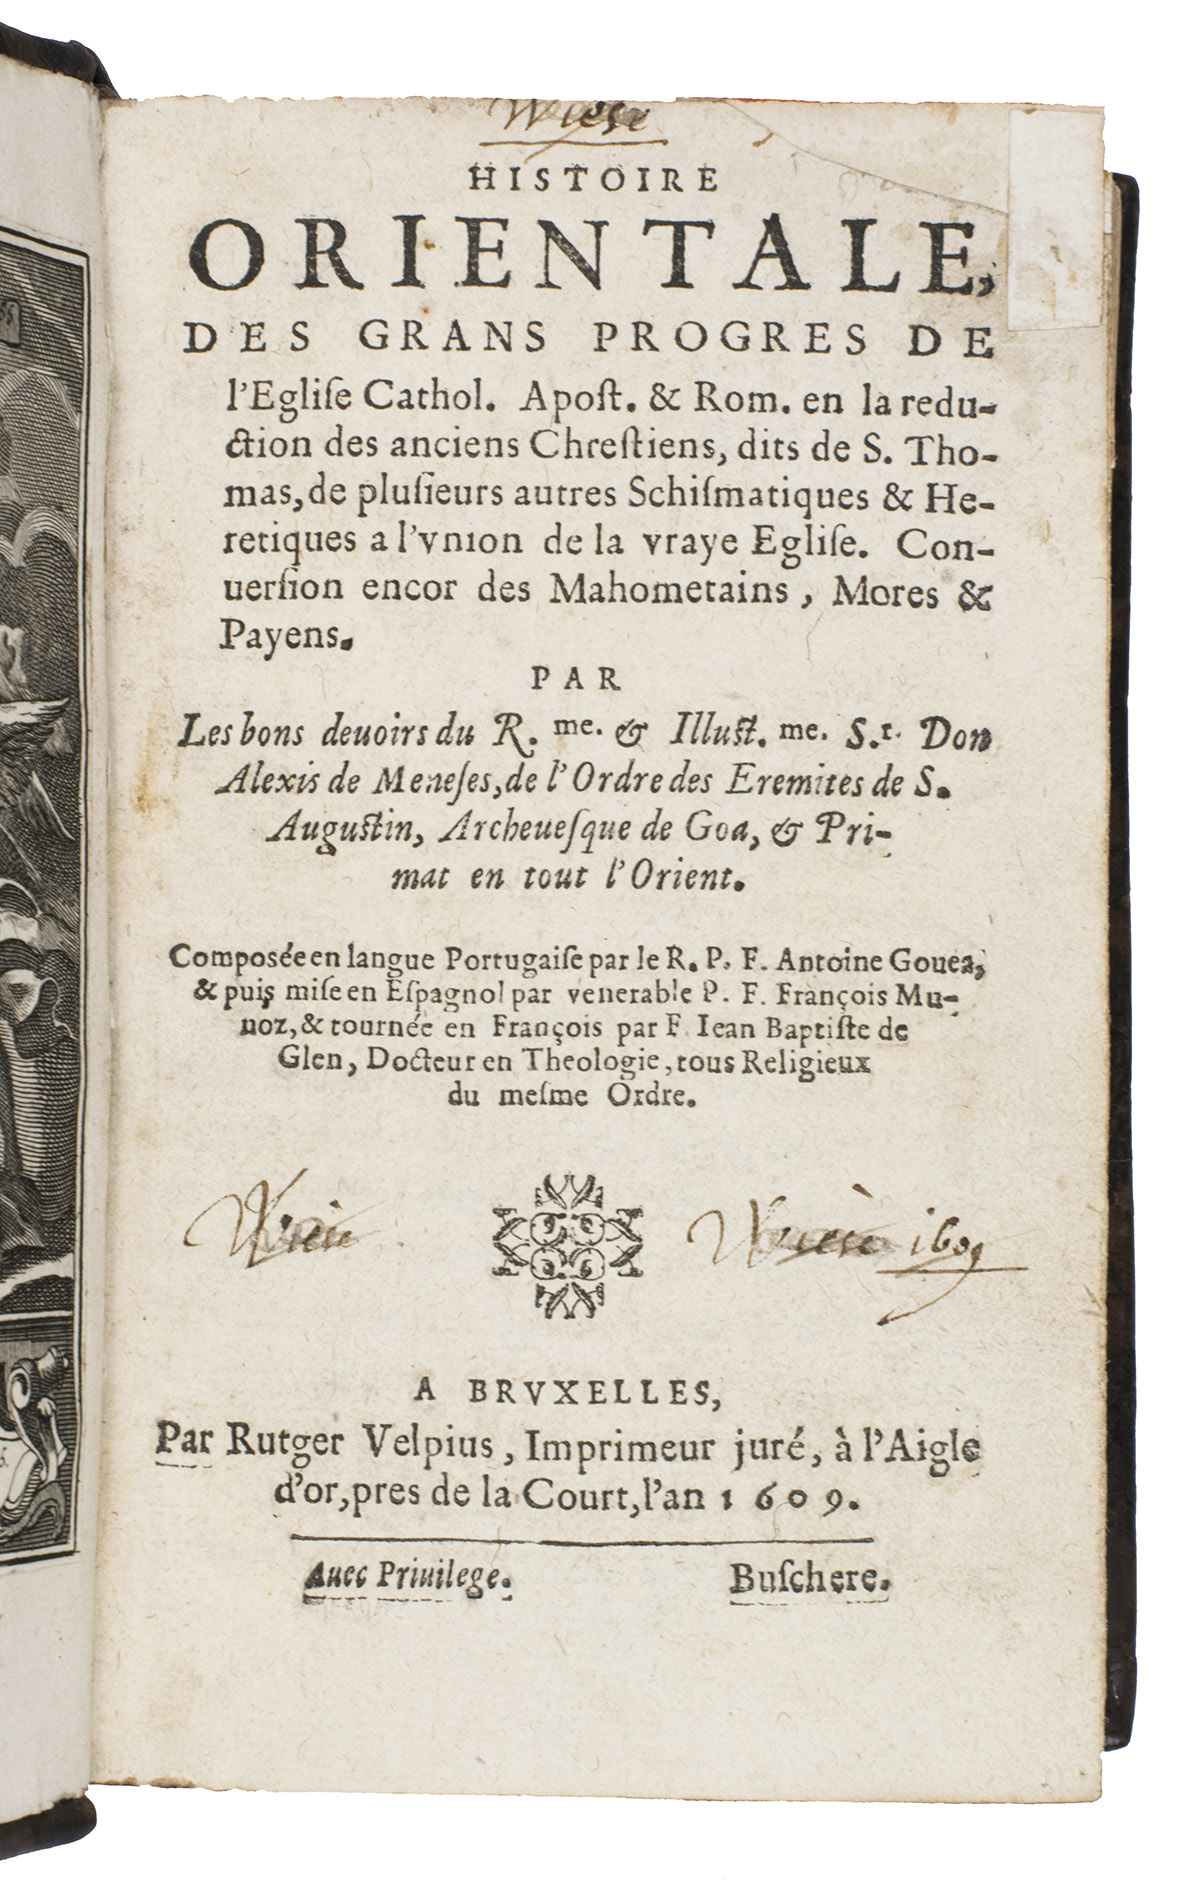 HISTOIRE
ORIENTALE,
DES GRANS PROGRES DE
l'Egliſe Cathol. Apoſt. & Rom. en la redu-
ction des anciens Chreſtiens, dits de S. Tho-
mas, de pluſieurs autres Schiſmatiques & He-
retiques a l'vnion de la vraye Egliſe. Con-
uerſion encor des Mahometains, Mores &
Payens.
PAR
Les bons deuoirs du R.me. & Illuſt.me. S.r. Don
Alexis de Meneſes, de l'Ordre des Eremites de S.
Auguſtin, Archeueſque de Goa, & Pri-
mat en tout l'Orient.
Composée en langue Portugaiſe par le R. P. F. Antoine Gouea,
& puis miſe en Eſpagnol par venerable P. F. François Mu-
noz, & tournée en François par F. Iean Baptiſte de
Glen, Docteur en Theologie, tous Religieux
du meſme Ordre.
1609
A BRVXELLES,
Par Rutger Velpius, Imprimeur juré, à l'Aigle
d'or, pres de la Court, l'an 1609.
Auec Priuilege. Buſchere.